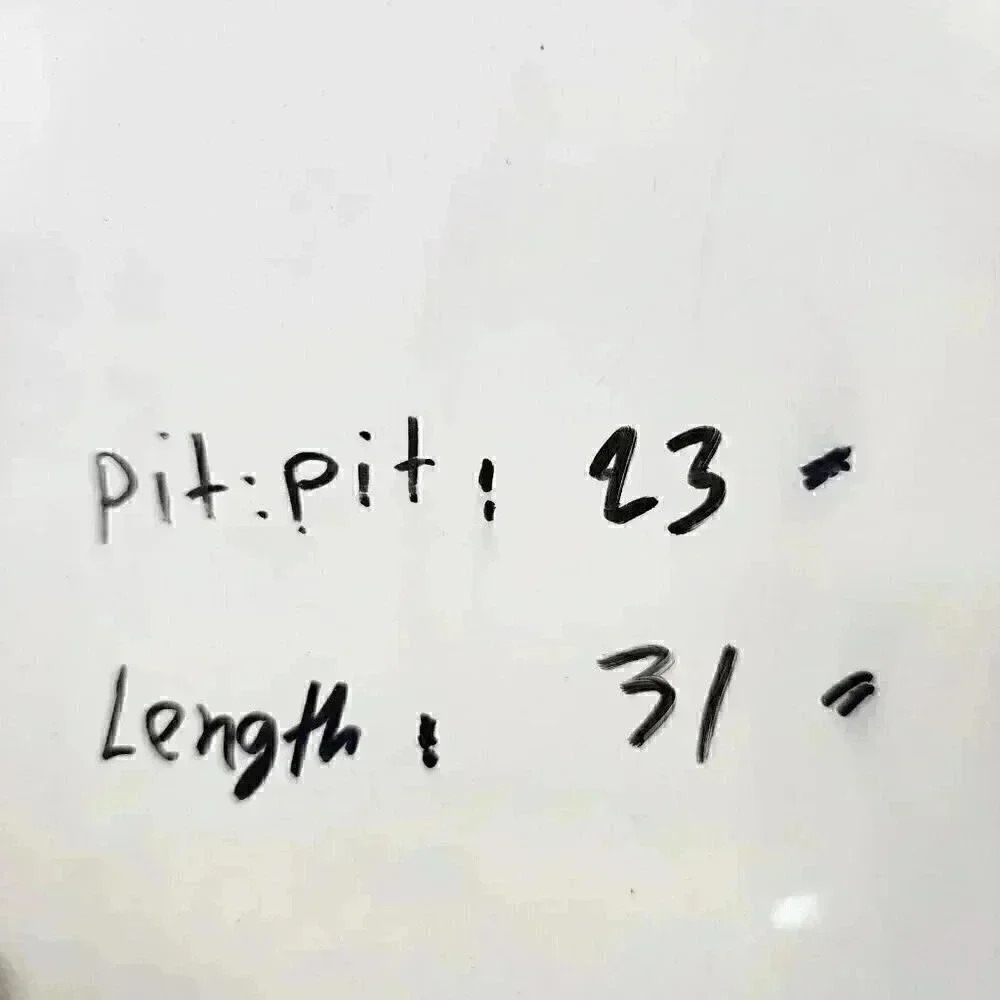 pit:pit: 23"
Length: 31"